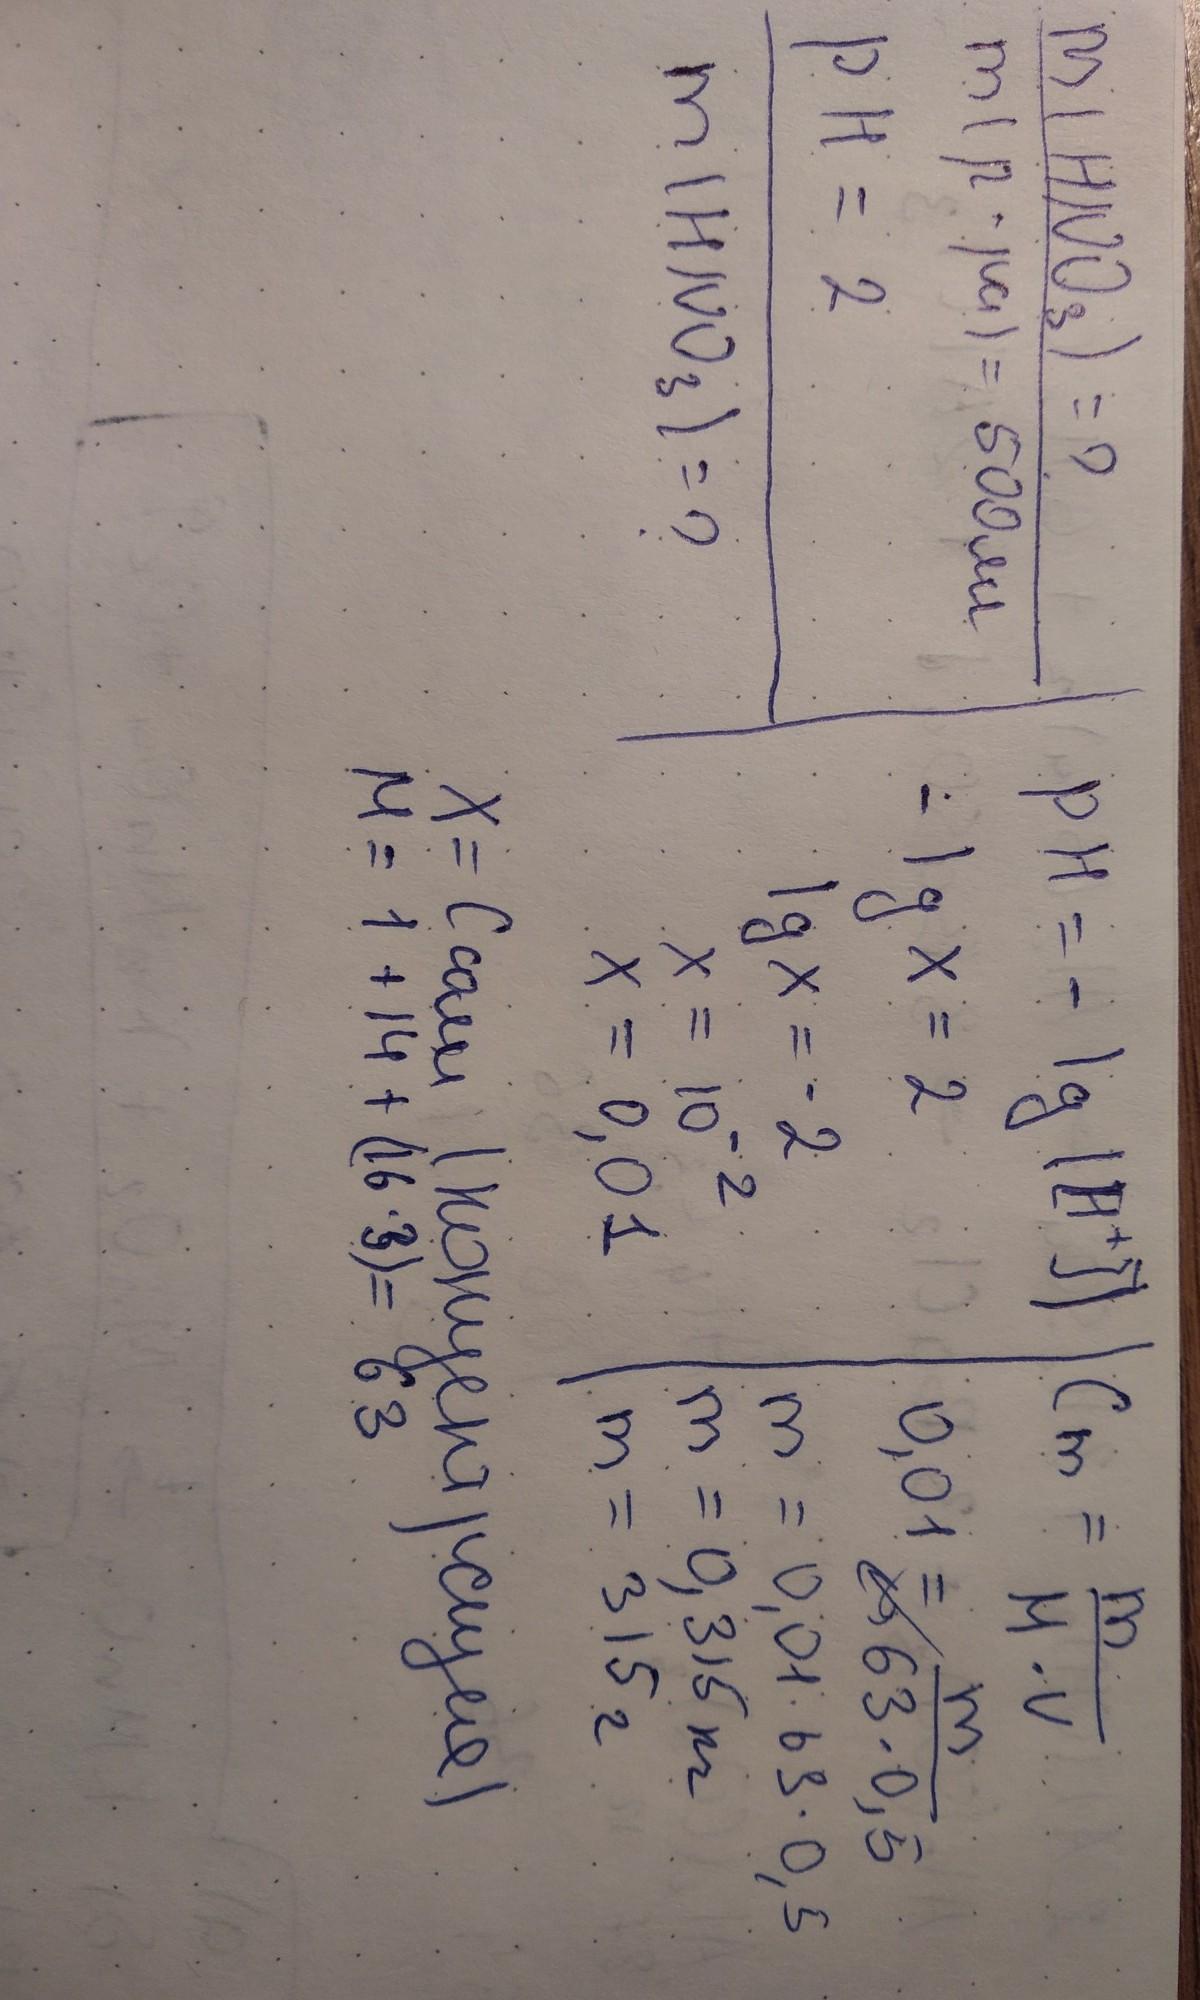 m(HNO₃) = ?
m(р-ра) = 500мл
pH = 2
m(HNO₃) = ?
pH = - lg([H⁺])
- lg x = 2
lg x = -2
x = 10⁻²
x = 0,01
Cm = m / M · V
0,01 = m / 63 · 0,5
m = 0,01 · 63 · 0,5
m = 0,315 кг
m = 315 г
x = Cсали (концентрация)
M = 1 + 14 + (16 · 3) = 63